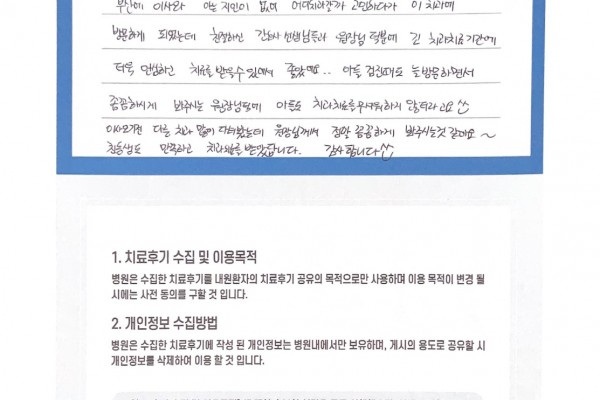 부산에 이사와 아는 지인이 없어 어디치과갈까 고민하다가 이 치과에
방문하게 되었는데 친절하신 간호사 선생님들과 원장님 덕분에 긴 치과치료기간에
더욱 안심하고 치료를 받을수 있어서 좋았어요.. 아들 검진때도 늘 방문하면서
꼼꼼하시게 봐주시는 원장님덕에 아들도 치과치료를 무서워하지 않더라고요^^
이사오기전 다른 치과 많이 다녀봤는데 원장님께서 정말 꼼꼼하게 봐주시는것 같아요~
친동생도 만족하고 치과치료를 받았답니다. 감사합니다^^
1. 치료후기 수집 및 이용목적
병원은 수집한 치료후기를 내원환자의 치료후기 공유의 목적으로만 사용하며 이용 목적이 변경 될
시에는 사전 동의를 구할 것 입니다.
2. 개인정보 수집방법
병원은 수집한 치료후기에 작성 된 개인정보는 병원내에서만 보유하며, 게시의 용도로 공유할 시
개인정보를 삭제하여 이용 할 것 입니다.